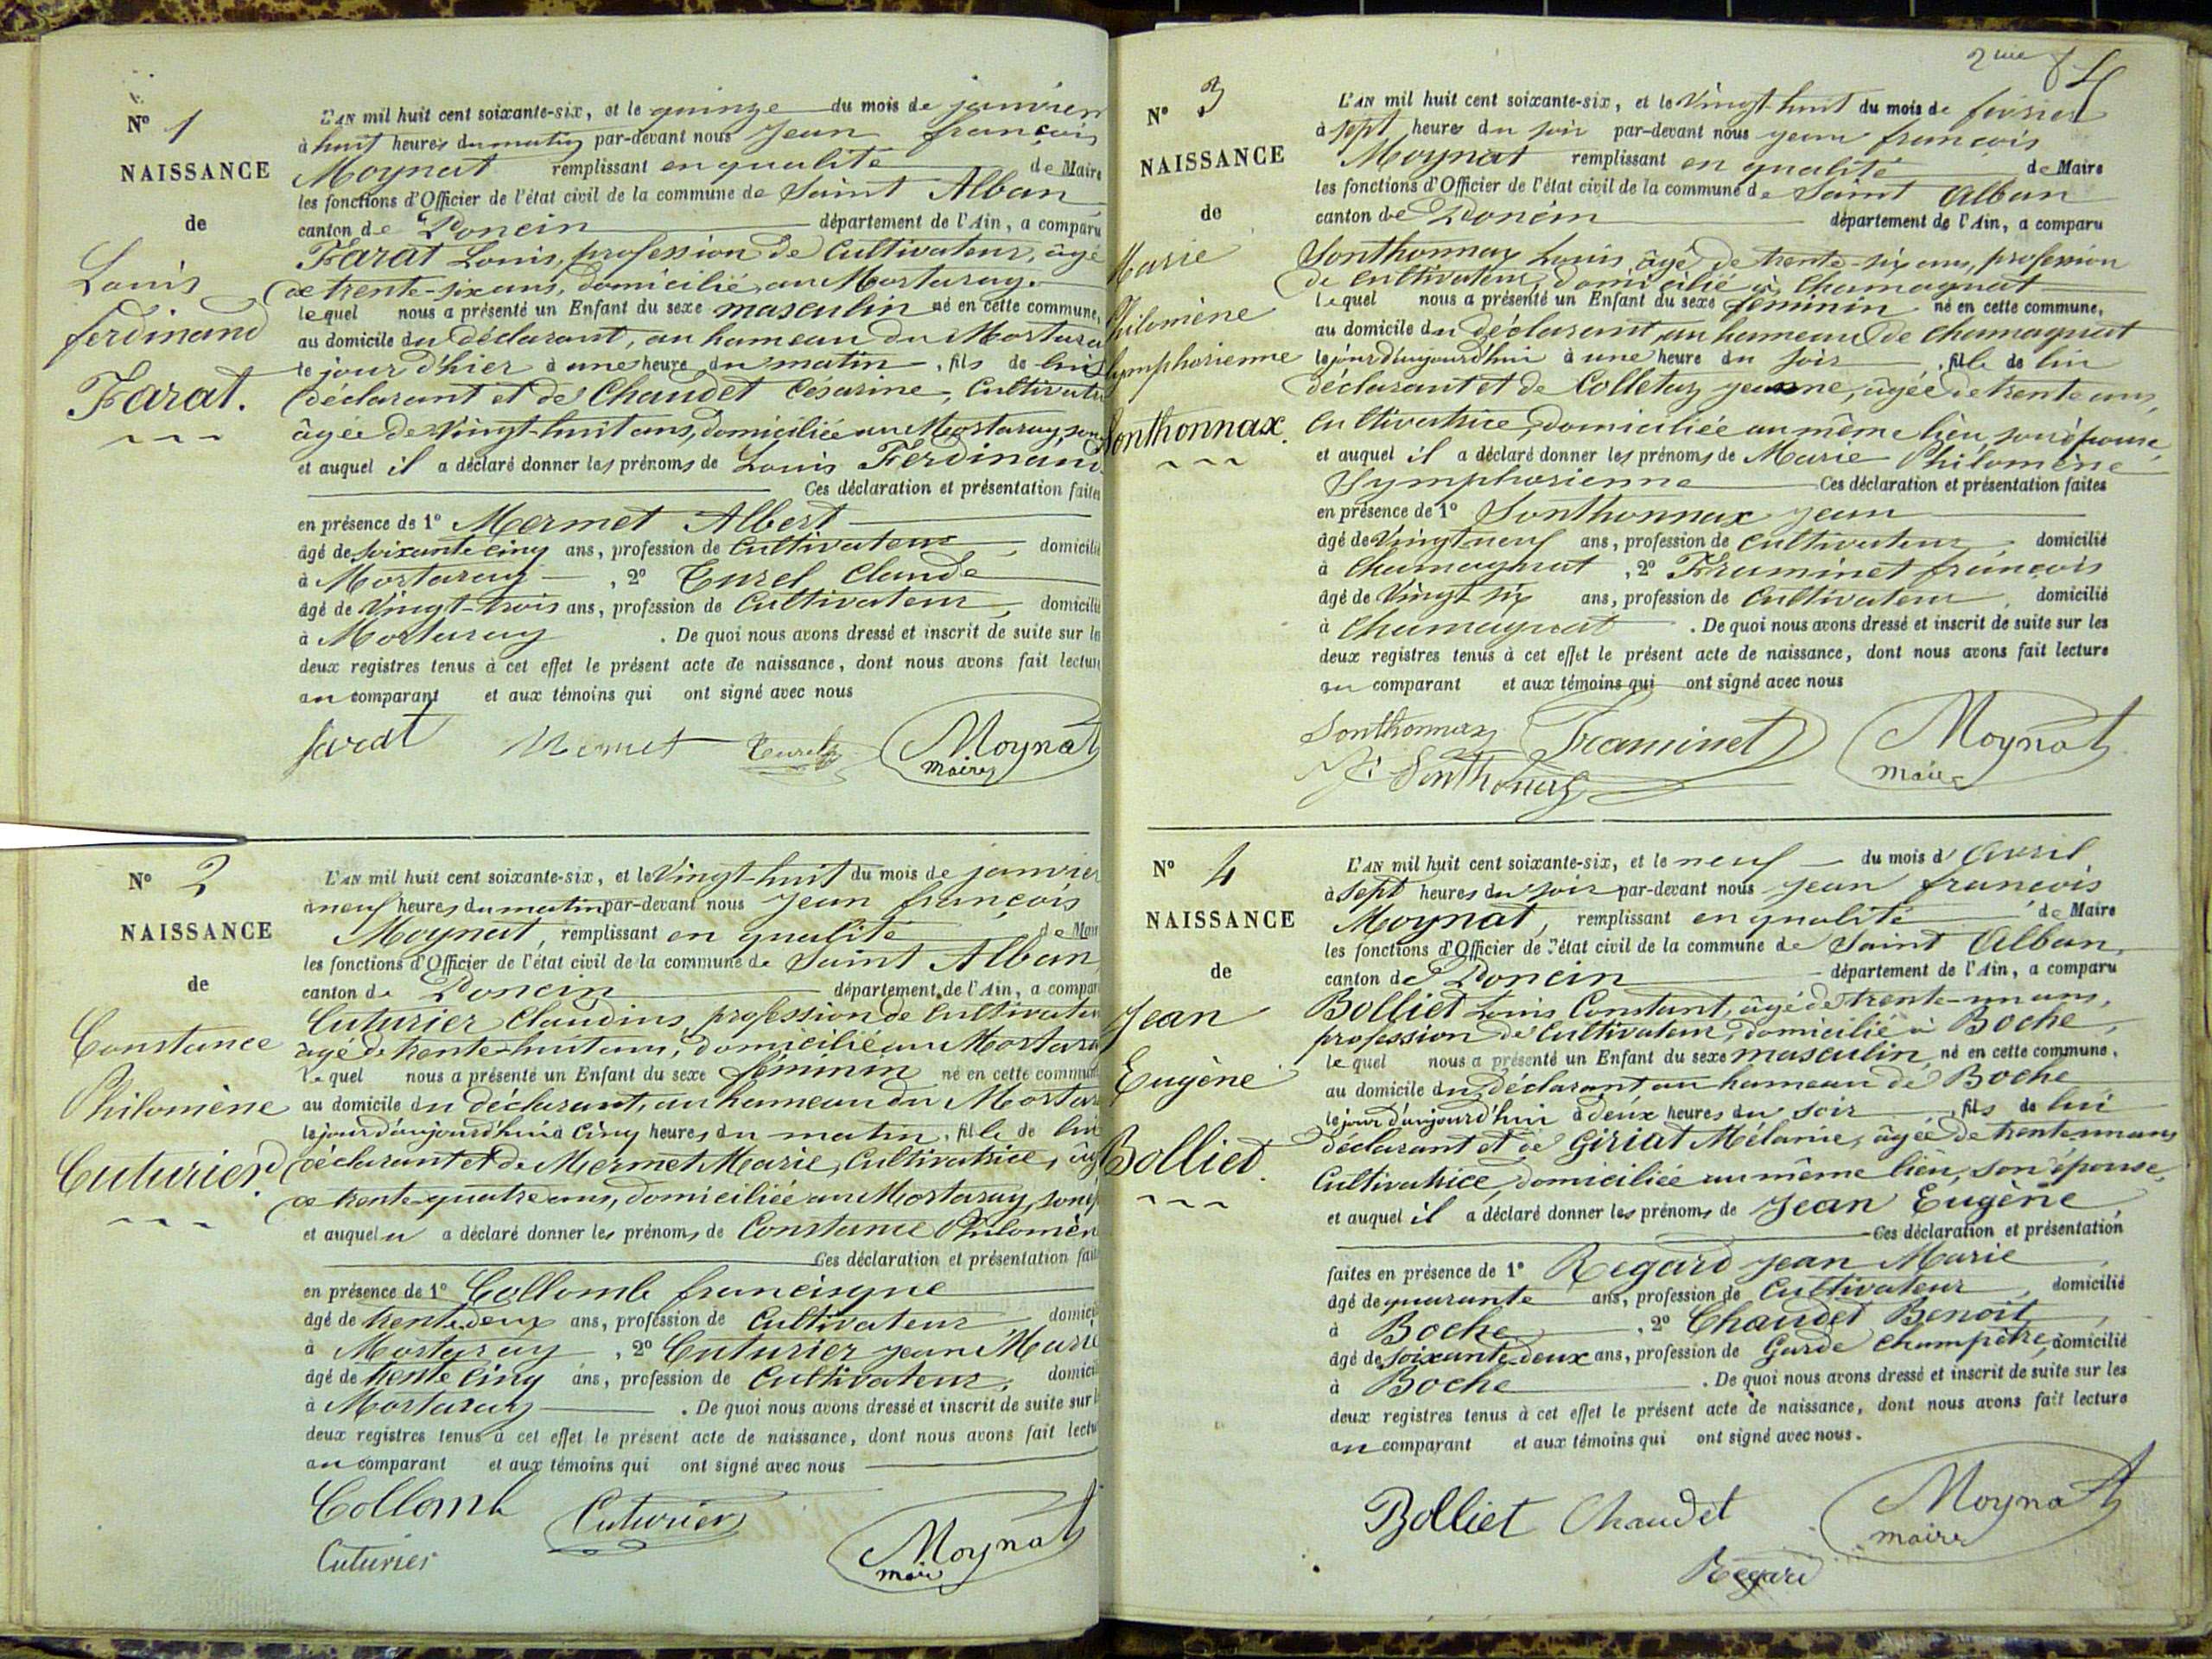 Nº 1
NAISSANCE
de
Louis
ferdinand
Farat.
L'AN mil huit cent soixante-six, et le quinze du mois de janvier
à huit heures du matin par-devant nous Jean françois
Moynat remplissant en qualité de Maire
les fonctions d'Officier de l'état civil de la commune de Saint Alban
canton de Poncin département de l'Ain, a comparu
Farat Louis, profession de Cultivateur, âgé
de trente-six ans, domicilié au Mortaray.
lequel nous a présenté un Enfant du sexe masculin né en cette commune,
au domicile du déclarant, au hameau du Mortara
le jour d'hier à une heure du matin, fils de lui
déclarant et de Chaudet Césarine, Cultivat
âgée de Vingt-huit ans, domiciliée au Mortaray, son
et auquel il a déclaré donner les prénoms de Louis Ferdinand
Ces déclaration et présentation faites
en présence de 1º Mermet Albert
âgé de soixante cinq ans, profession de Cultivateur, domicilié
à Mortaray, 2º Turel Claude
âgé de Vingt-trois ans, profession de Cultivateur, domicilié
à Mortaray. De quoi nous avons dressé et inscrit de suite sur les
deux registres tenus à cet effet le présent acte de naissance, dont nous avons fait lecture
au comparant et aux témoins qui ont signé avec nous
farat Mermet Turel Moynat
maire
Nº 2
NAISSANCE
de
Constance
Philomène
Cuturier.
L'AN mil huit cent soixante-six, et le Vingt-huit du mois de janvier
à neuf heures du matin par-devant nous Jean françois
Moynat, remplissant en qualité de Mair
les fonctions d'Officier de l'état civil de la commune de Saint Alban
canton de Poncin département de l'Ain, a compar
Cuturier Claudius, profession de Cultivateu
âgé de trente-huit ans, domicilié au Mortara
lequel nous a présenté un Enfant du sexe féminin né en cette commun
au domicile du déclarant, au hameau du Mortar
le jour d'aujourd'hui à Cinq heures du matin, fille de lui
déclarant et de Mermet Marie, Cultivatrice, âg
de trente-quatre ans, domiciliée au Mortaray, son é
et auquel il a déclaré donner les prénoms de Constance Philomèn
Ces déclaration et présentation fait
en présence de 1º Collomb francisque
âgé de trente deux ans, profession de Cultivateur, domici
à Mortaray, 2º Cuturier Jean Marie
âgé de trente Cinq ans, profession de Cultivateur, domici
à Mortaray. De quoi nous avons dressé et inscrit de suite sur l
deux registres tenus à cet effet le présent acte de naissance, dont nous avons fait lectu
au comparant et aux témoins qui ont signé avec nous
Collomb Cuturier
Cuturier Moynat
maire
Nº 3
NAISSANCE
de
Marie
Philomène
Symphorienne
Sonthonnax.
L'AN mil huit cent soixante-six, et le Vingt-huit du mois de février
à sept heures du soir par-devant nous Jean françois
Moynat remplissant en qualité de Maire
les fonctions d'Officier de l'état civil de la commune de Saint Alban
canton de Poncin département de l'Ain, a comparu
Sonthonnax Louis âgé de trente-six ans, profession
de Cultivateur, domicilié à Chamagnat
lequel nous a présenté un Enfant du sexe féminin né en cette commune,
au domicile du déclarant au hameau de Chamagnat
le jour d'aujourd'hui à une heure du soir, fille de lui
déclarant et de Colletaz Jeanne, âgée de trente ans,
Cultivatrice, domiciliée au même lieu, son épouse,
et auquel il a déclaré donner les prénoms de Marie Philomène
Symphorienne Ces déclaration et présentation faites
en présence de 1º Sonthonnax Jean
âgé de Vingt neuf ans, profession de Cultivateur, domicilié
à Chamagnat, 2º Framinet françois
âgé de Vingt six ans, profession de Cultivateur, domicilié
à Chamagnat. De quoi nous avons dressé et inscrit de suite sur les
deux registres tenus à cet effet le présent acte de naissance, dont nous avons fait lecture
au comparant et aux témoins qui ont signé avec nous
Sonthonnax Framinet Moynat
J. Sonthonax maire
Nº 4
NAISSANCE
de
Jean
Eugène
Bolliet.
L'AN mil huit cent soixante-six, et le neuf du mois d'Avril
à Sept heures du soir par-devant nous Jean françois
Moynat, remplissant en qualité de Maire
les fonctions d'Officier de l'état civil de la commune de Saint Alban,
canton de Poncin département de l'Ain, a comparu
Bolliet Louis Constant, âgé de trente-un ans,
profession de Cultivateur, domicilié à Boche,
lequel nous a présenté un Enfant du sexe masculin, né en cette commune,
au domicile du déclarant au hameau de Boche
le jour d'aujourd'hui à deux heures du soir, fils de lui
déclarant et de Giriat Mélanie, âgée de trente un ans
Cultivatrice, domiciliée au même lieu, son épouse,
et auquel il a déclaré donner les prénoms de Jean Eugène
Ces déclaration et présentation
faites en présence de 1º Regard Jean Marie
âgé de quarante ans, profession de Cultivateur, domicilié
à Boche, 2º Chaudet Benoit
âgé de soixante-deux ans, profession de Garde champêtre, domicilié
à Boche. De quoi nous avons dressé et inscrit de suite sur les
deux registres tenus à cet effet le présent acte de naissance, dont nous avons fait lecture
au comparant et aux témoins qui ont signé avec nous.
Bolliet Chaudet Moynat
maire
Regard